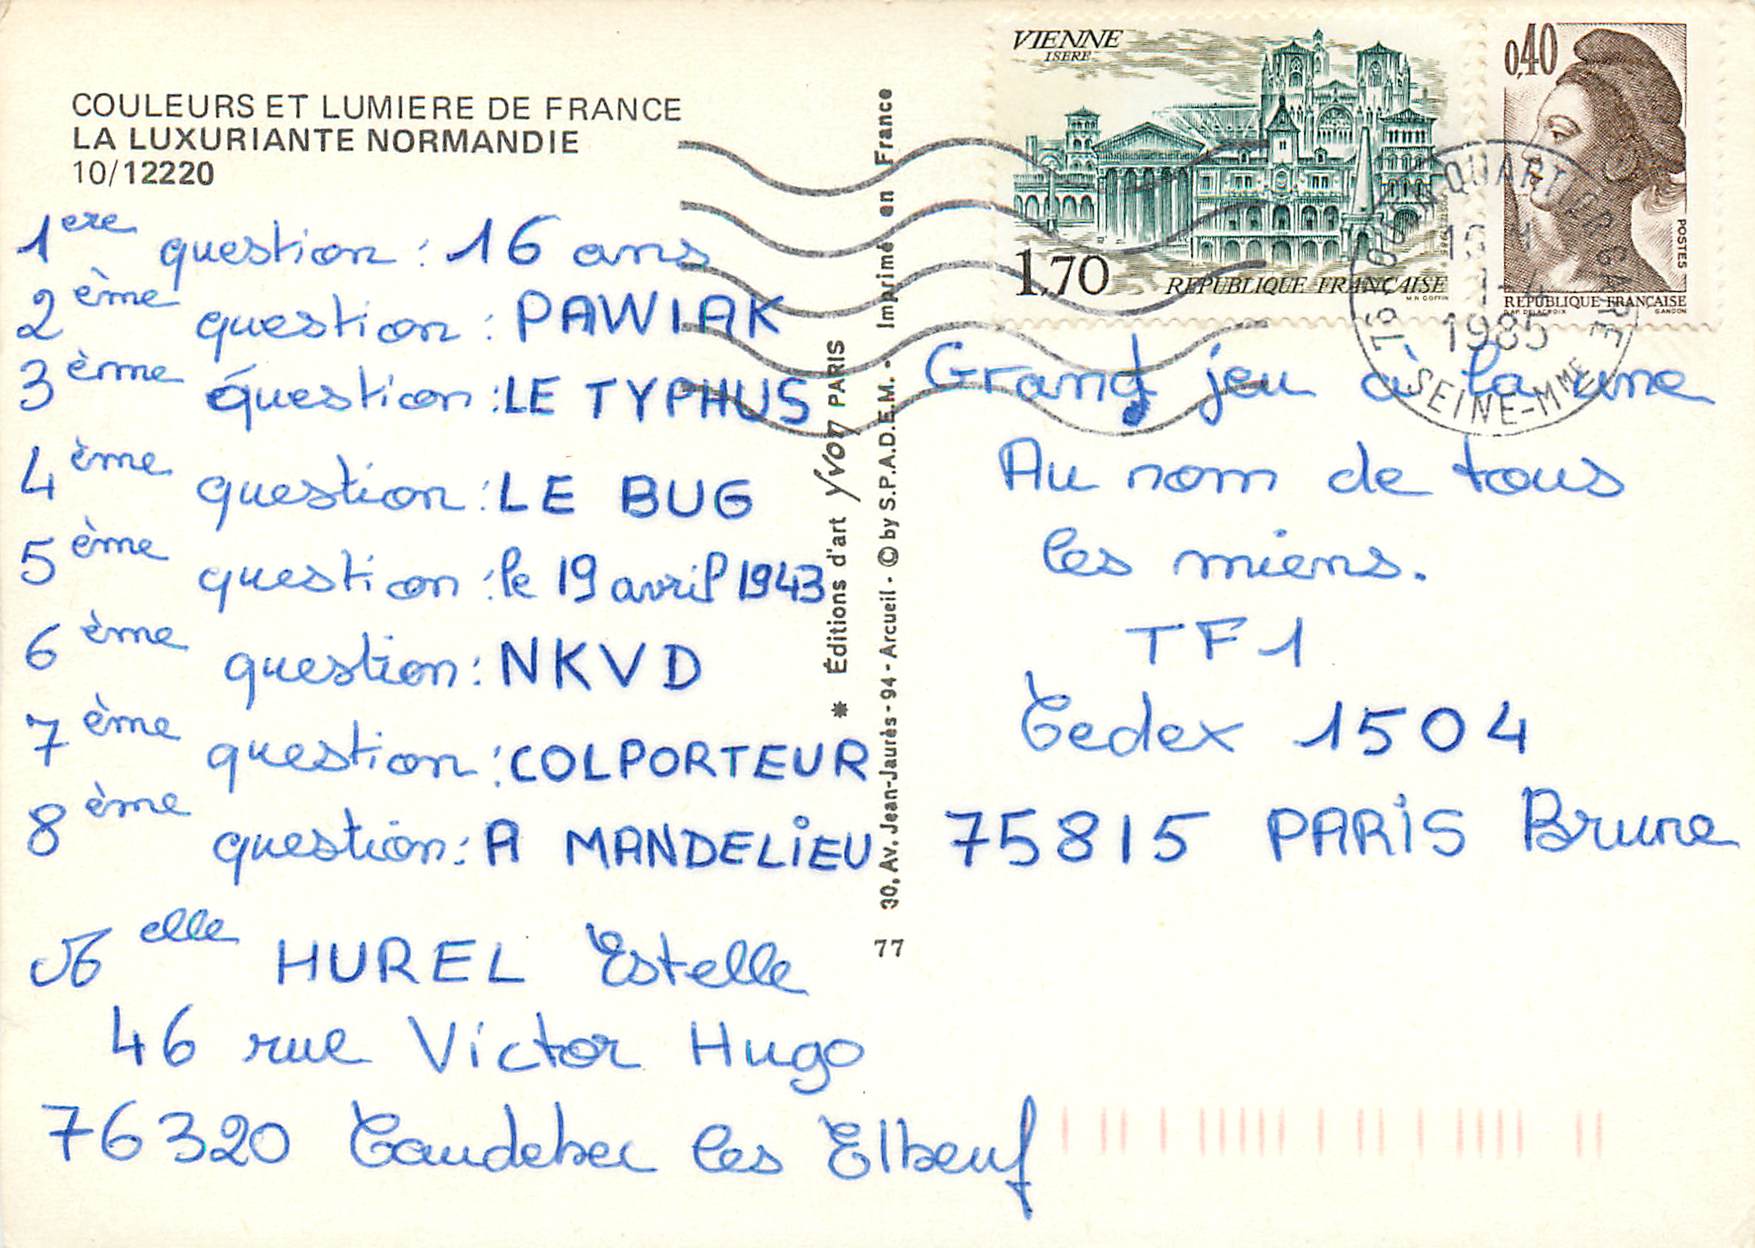 COULEURS ET LUMIERE DE FRANCE
LA LUXURIANTE NORMANDIE
10/12220
1ere question : 16 ans
2ème question : PAWIAK
3ème question : LE TYPHUS
4ème question : LE BUG
5ème question : le 19 avril 1943
6ème question : NKVD
7ème question : COLPORTEUR
8ème question : A MANDELiEU
Melle HUREL Estelle
46 rue Victor Hugo
76320 Caudebec les Elbeuf
* Éditions d'art Yvon PARIS
30, Av. Jean-Jaurès - 94 - Arcueil - © by S.P.A.D.E.M. - Imprimé en France
77
VIENNE
ISERE
1,70
REPUBLIQUE FRANÇAISE
0,40
POSTES
REPUBLIQUE FRANÇAISE
D'AP. DELACROIX GANDON
1985
SEINE-MME
Grand jeu à la une
Au nom de tous
les miens.
TF1
Cedex 1504
75815 PARiS Brune